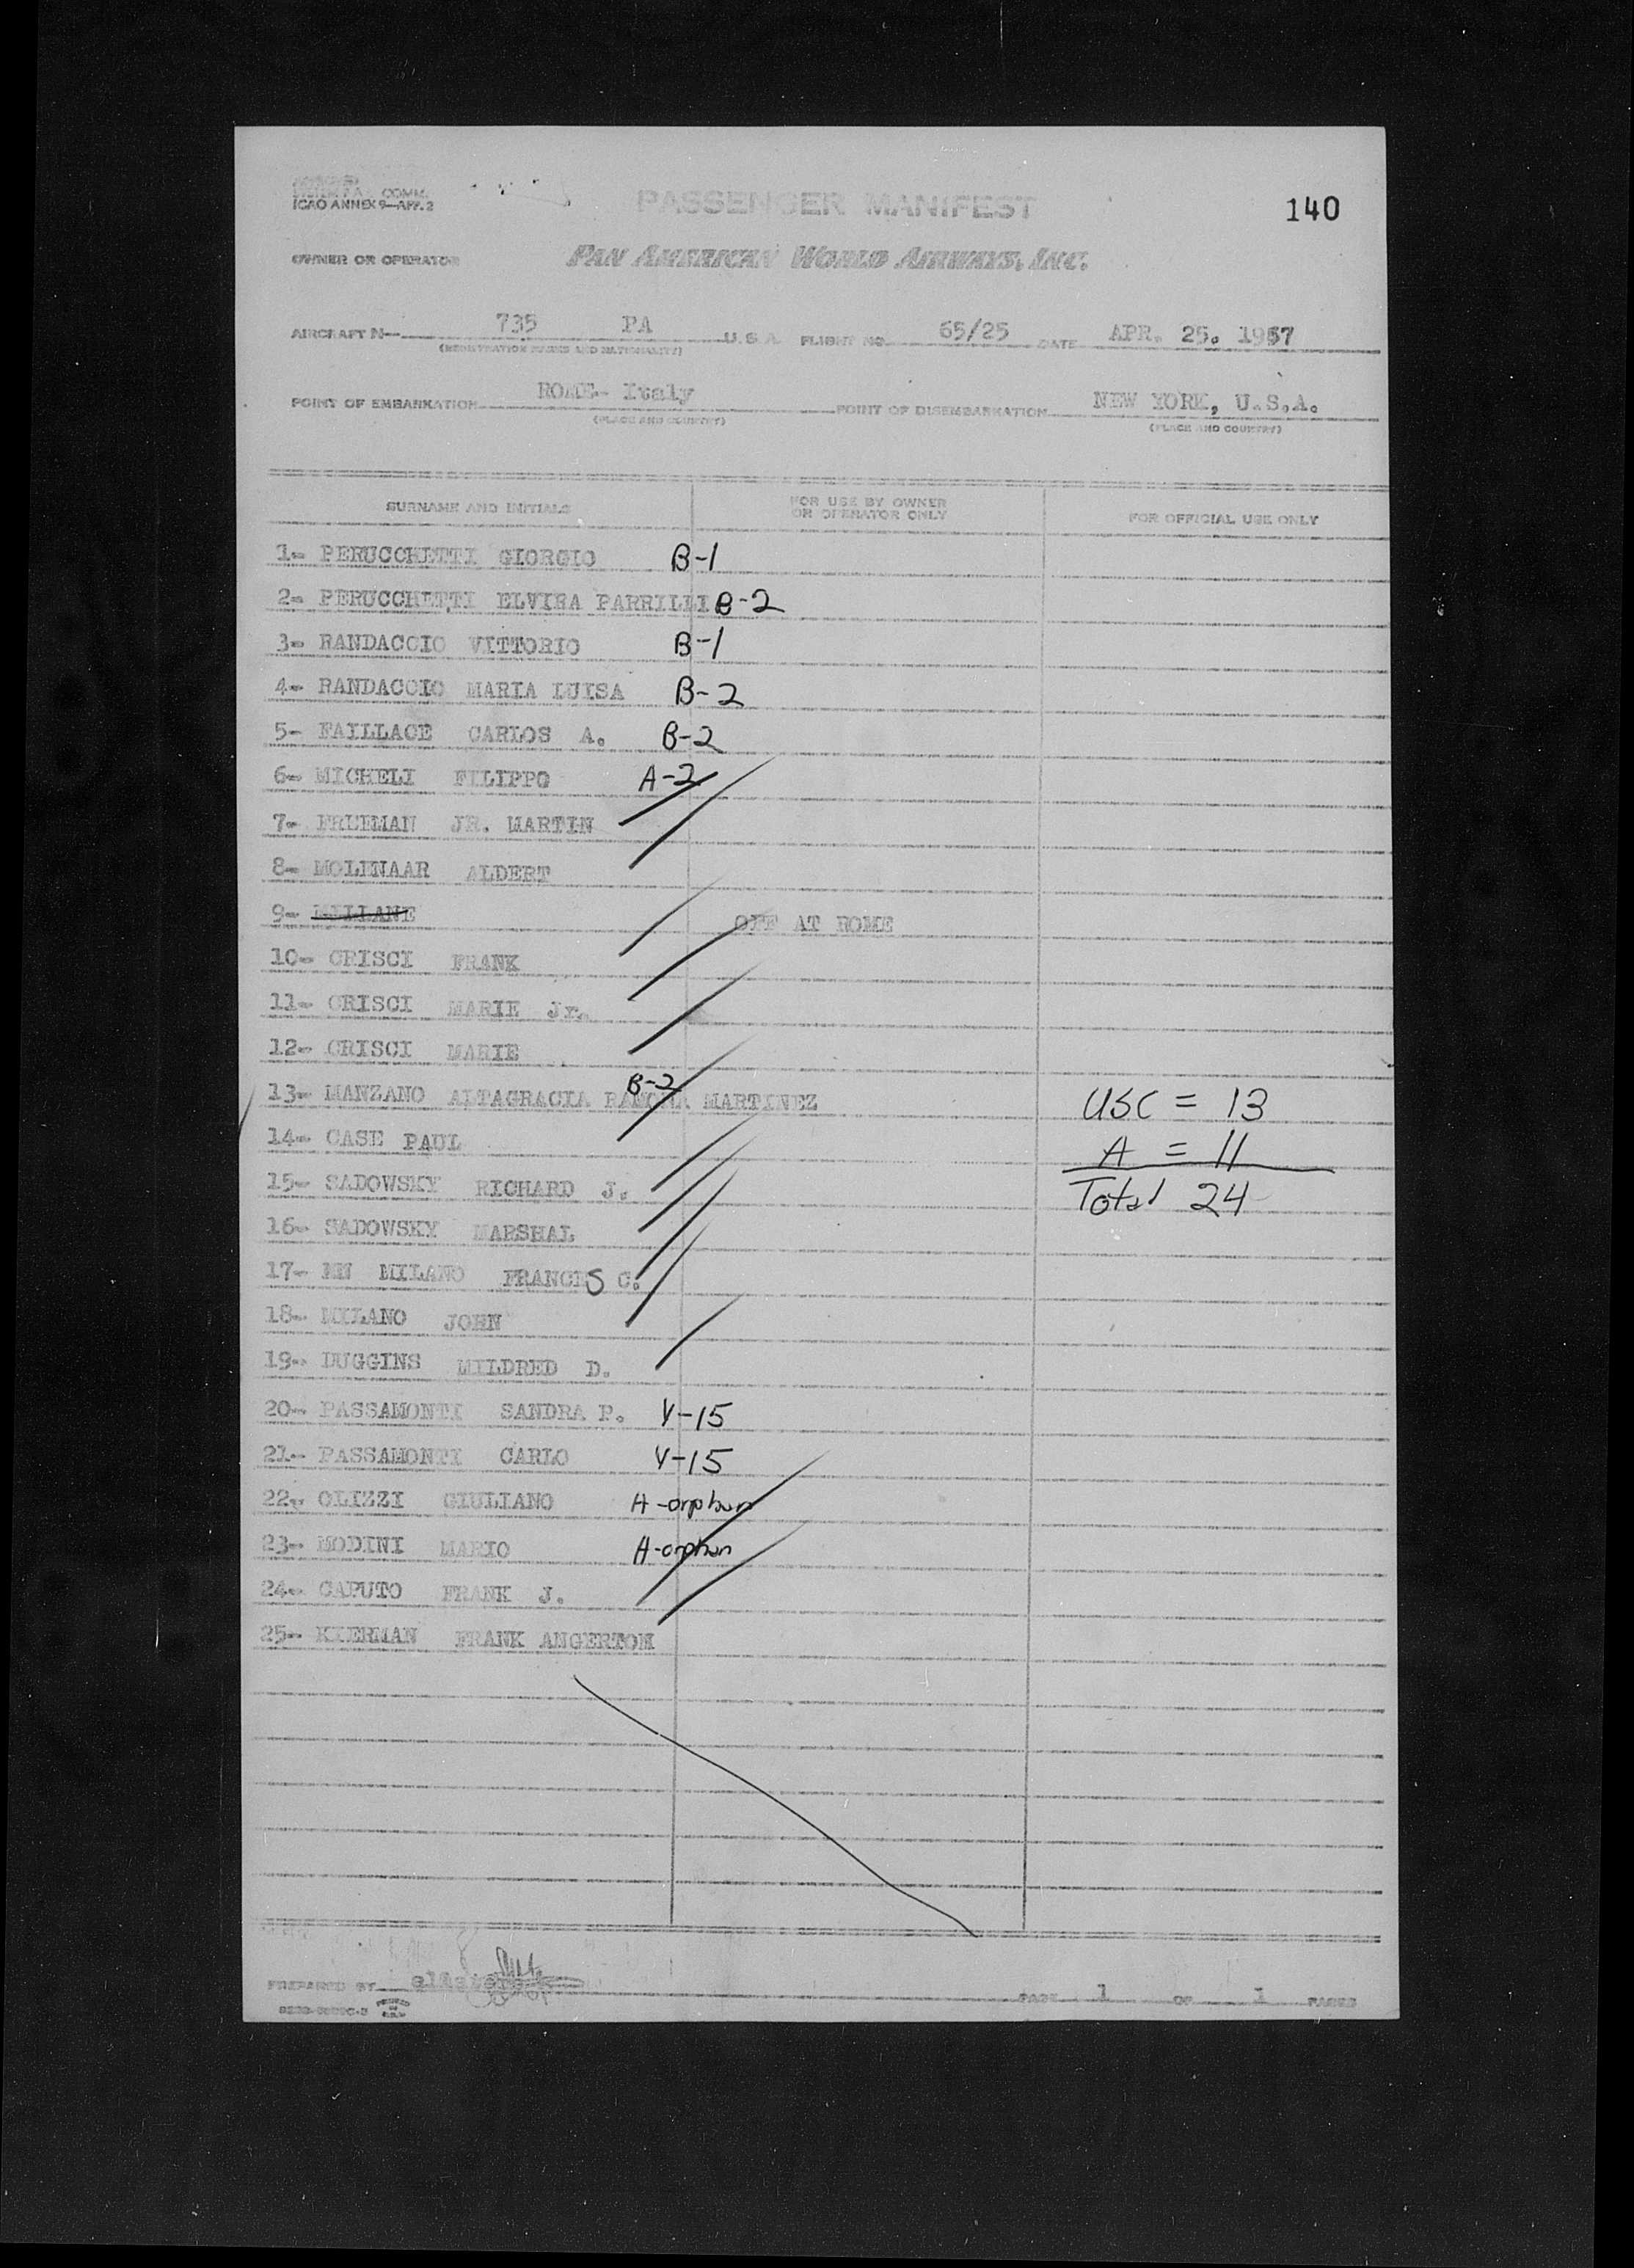 COMM.
ICAO ANNEX 9—APP. 2
PASSENGER MANIFEST
140
OWNER OR OPERATOR
PAN AMERICAN WORLD AIRWAYS, INC.
AIRCRAFT N— 735 PA U.S.A. FLIGHT NO. 65/25 DATE APR. 25. 1957
(REGISTRATION MARKS AND NATIONALITY)
POINT OF EMBARKATION ROME- Italy POINT OF DISEMBARKATION NEW YORK, U.S.A.
(PLACE AND COUNTRY) (PLACE AND COUNTRY)
SURNAME AND INITIALS FOR USE BY OWNER OR OPERATOR ONLY FOR OFFICIAL USE ONLY
1- PERUCCHETTI GIORGIO B-1
2- PERUCCHETTI ELVIRA PARRILLI B-2
3- RANDACCIO VITTORIO B-1
4- RANDACCIO MARIA LUISA B-2
5- FAILLACE CARLOS A. B-2
6- MICHELI FILIPPO A-2
7- FRUIMAN JR. MARTIN
8- MOLENAAR ALDERT
9- OFF AT ROME
10- CRISCI FRANK
11- CRISCI MARIE Jr.
12- CRISCI MARIE
13- MANZANO ALTAGRACIA RAMONA MARTINEZ B-2
USC = 13
14- CASE PAUL
A = 11
15- SADOWSKY RICHARD J.
Total 24
16- SADOWSKY MARSHAL
17- MILANO FRANCES C.
18- MILANO JOHN
19- DUGGINS MILDRED D.
20- PASSAMONTI SANDRA P. V-15
21- PASSAMONTI CARLO V-15
22- OLIZZI GIULIANO A-orphan
23- MODINI MARIO A-orphan
24- CAPUTO FRANK J.
25- KIERMAN FRANK ANGERTOM
PREPARED BY
PAGE 1 OF 1 PAGES